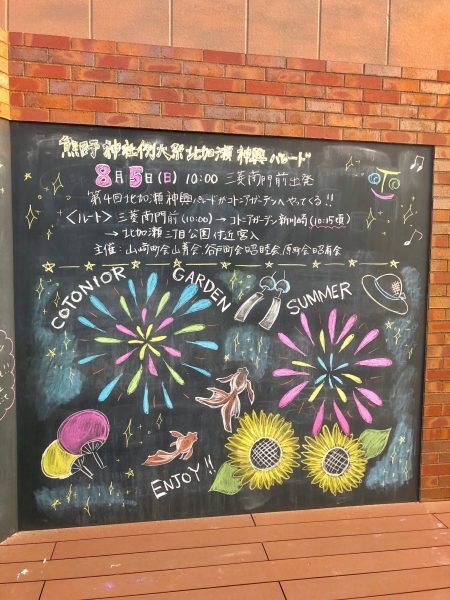 熊野神社例大祭北加瀬神輿パレード
8月5日(日) 10:00 三菱南門前出発
第4回北加瀬神輿パレードがコトニアガーデンへやってくる!!
<ルート> 三菱南門前(10:00) → コトニアガーデン新川崎(10:15頃)
→ 北加瀬三丁目公園付近宮入
主催:山崎町会山青会、谷戸町会昭睦会、原町会昭有会
COTONIOR GARDEN SUMMER
ENJOY!!